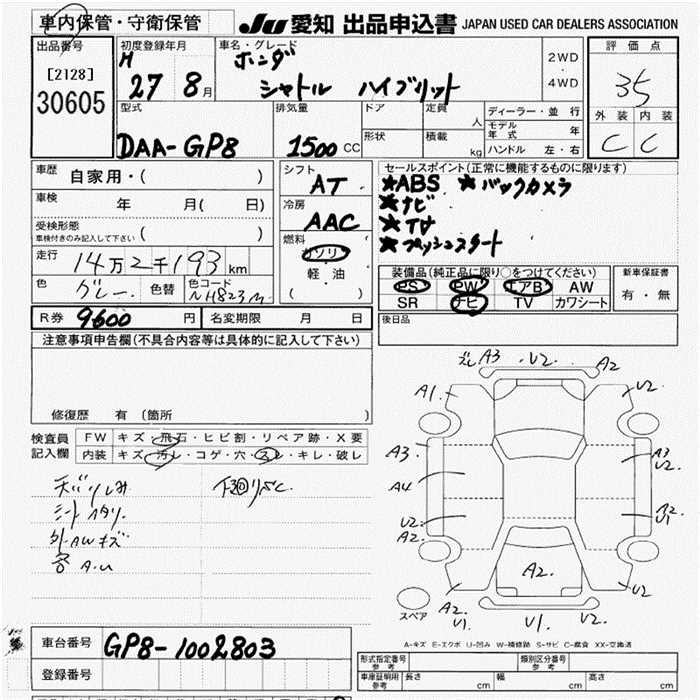 車内保管・守衛保管
JU 愛知 出品申込書 JAPAN USED CAR DEALERS ASSOCIATION
出品番号
[2128]
30605
初度登録年月
H 27 8月
車名・グレード
ホンダ
シャトル ハイブリット
2WD
・
4WD
評価点
35
外装 内装
C C
型式
DAA-GP8
排気量
1500 CC
ドア
定員 人
形状
積載 kg
ディーラー・並行
モデル年式 年
ハンドル 左・右
車歴
自家用・( )
車検
年 月( 日)
受検形態
車検付きのみ記入して下さい ( )
走行
14万2千193 km
色
グレー
色替
色コード
NH823M
シフト
AT
冷房
AAC
燃料
ガソリン
軽・油
( )
セールスポイント(正常に機能するものに限ります)
★ABS ★バックカメラ
★ナビ
★TV
★プッシュスタート
装備品(純正品に限り○をつけてください)
PS PW エアB AW
SR ナビ TV カワシート
新車保証書
有・無
R券 9600 円
名変期限 月 日
後日品
注意事項申告欄(不具合内容等は具体的に記入して下さい)
修復歴 有 (箇所 )
検査員
記入欄
FW キズ・飛石・ヒビ割・リペア跡・X要
内装 キズ・汚レ・コゲ・穴・スレ・キレ・破レ
シートヘタリ
外AWキズ
各A.U
A3 V2. A2
A1 V2
A3
A3 V2.
A4
V2. A2.
A2. V1
A2.
V2
A2 V1. V1 V2
スペア
A-キズ E-エクボ U-凹み W-補修跡 S-サビ C-腐食 XX-交換済
車台番号
GP8-1002803
登録番号
形式指定番号
参考
類別区分番号
参考
車庫証明用
参考
長さ cm
幅 cm
高さ cm